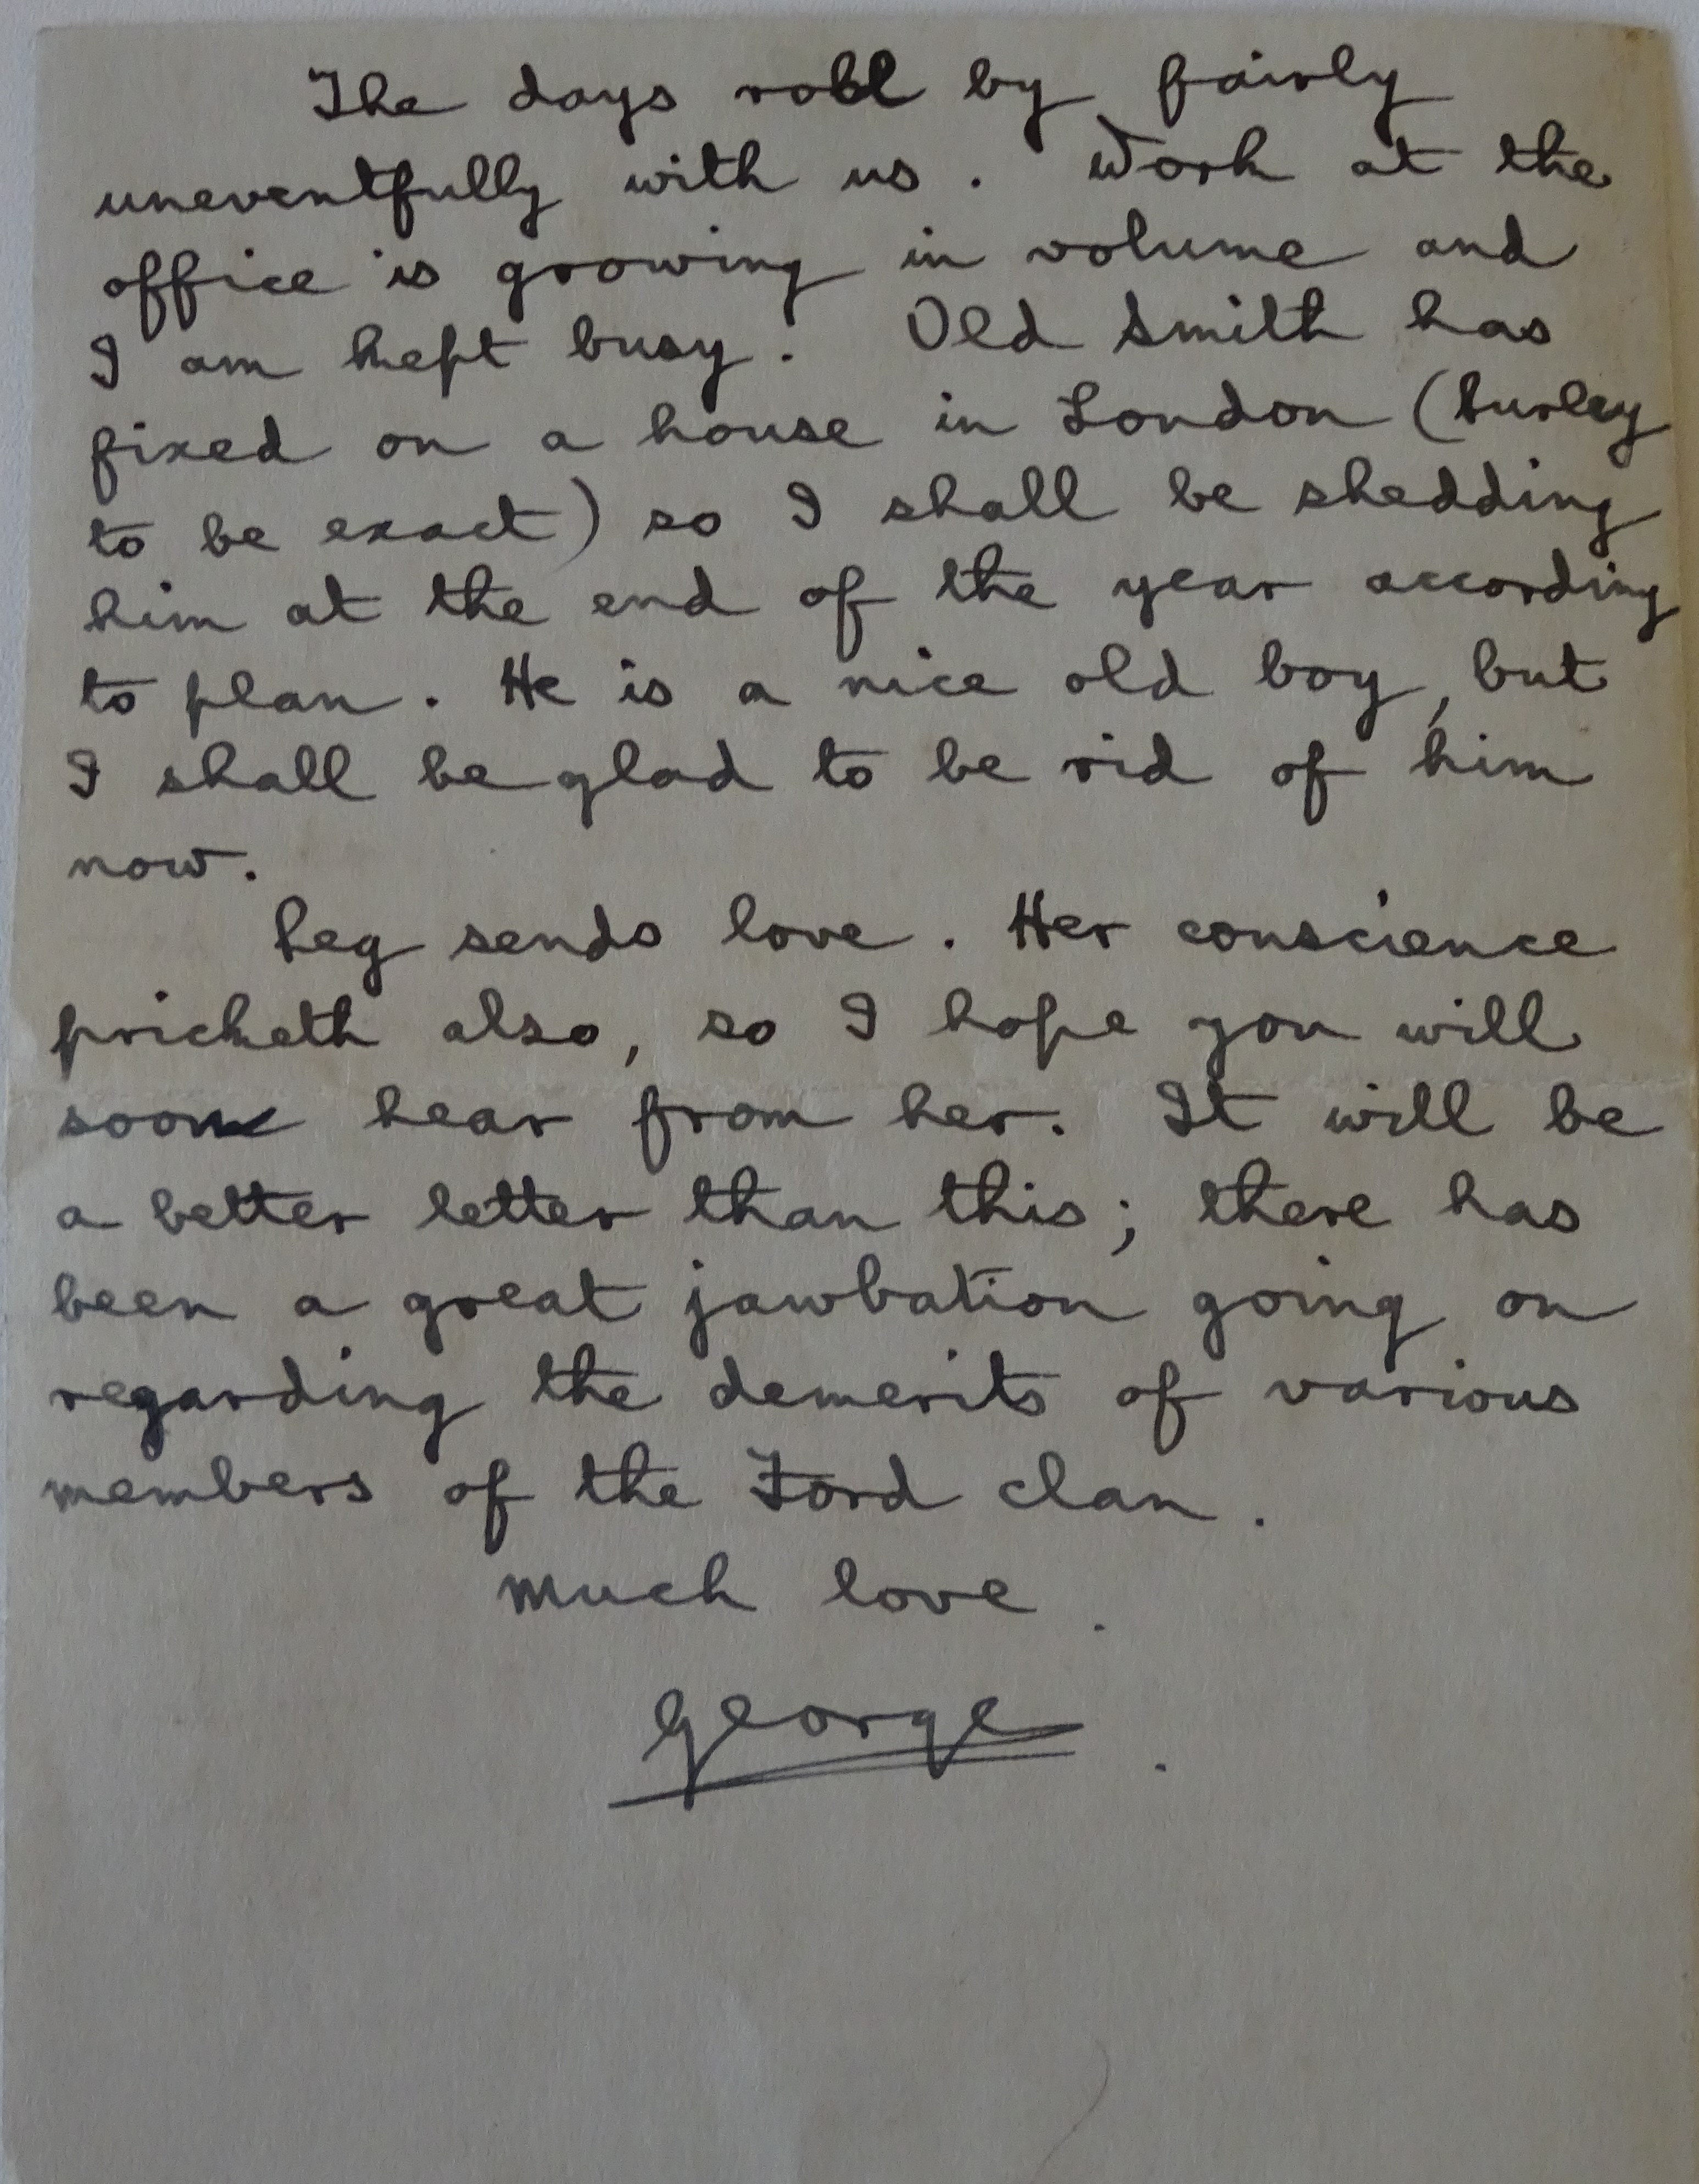 The days roll by fairly
uneventfully with us. Work at the
office is growing in volume and
I am kept busy. Old Smith has
fixed on a house in London (Purley
to be exact) so I shall be shedding
him at the end of the year according
to plan. He is a nice old boy, but
I shall be glad to be rid of him
now.
Peg sends love. Her conscience
pricketh also, so I hope you will
soon hear from her. It will be
a better letter than this; there has
been a great jawbation going on
regarding the demerits of various
members of the Ford clan.
Much love.
George.